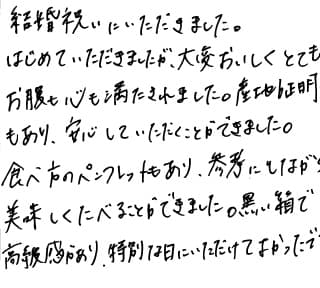 結婚祝いにいただきました。
はじめていただきましたが、大変おいしくとても
お腹も心も満たされました。産地証明
もあり、安心していただくことができました。
食べ方のパンフレットもあり、参考にしながら
美味しくたべることができました。黒い箱で
高級感があり、特別な日にいただけてよかったで